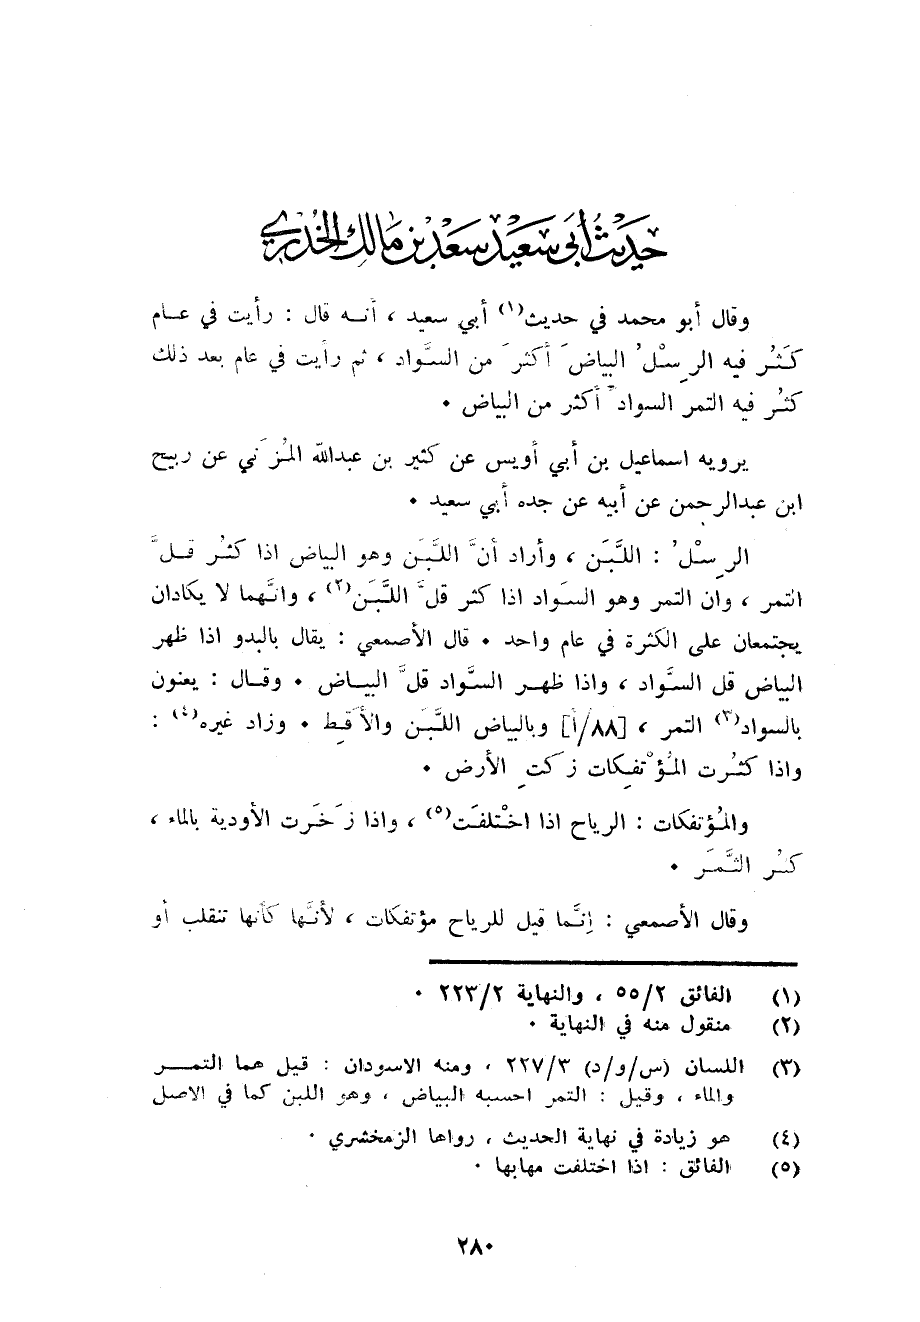 حديث أبي سعيد سعد بن مالك الخدري
وقال أبو محمد في حديث(١) أبي سعيد ، أنــه قال : رأيت في عــام
كَثُر فيه الرِسْلُ البياضَ أكثرَ من السَّواد ، ثم رأيت في عام بعد ذلك
كثُر فيه التمر السوادَ أكثر من البياض .
يرويه اسماعيل بن أبي أويس عن كثير بن عبدالله المُزَني عن ربيح
ابن عبدالرحمن عن أبيه عن جده أبي سعيد .
الرِسْلُ : اللَّبَن ، وأراد أنَّ اللَّبَن وهو البياض اذا كثُر قــلَّ
التمر ، وان التمر وهو السَواد اذا كثر قلَّ اللَّبَن(٢) ، وانَّهما لا يكادان
يجتمعان على الكثرة في عام واحد . قال الأصمعي : يقال بالبدو اذا ظهر
البياض قل السَّواد ، واذا ظهــر السَّواد قلَّ البيــاض . وقــال : يعنون
بالسواد(٣) التمر ، [٨٨/أ] وبالياض اللَّبَن والأَقِط . وزاد غيره(٤) :
واذا كثُرت المُؤْتفِكات زكَتِ الأرض .
والمُؤتفكات : الرياح اذا اخْتلفَت(٥) ، واذا زَخَرت الأودية بالماء ،
كثُر الثَّمَر .
وقال الأصمعي : إنَّما قيل للرياح مؤتفكات ، لأنَّها كأنها تنقلب أو
(١) الفائق ٥٥/٢ ، والنهاية ٢٢٣/٢ .
(٢) منقول منه في النهاية .
(٣) اللسان (س/و/د) ٢٢٧/٣ ، ومنه الاسودان : قيل هما التمــر
والماء ، وقيل : التمر احسبه البياض ، وهو اللبن كما في الاصل
(٤) هو زيادة في نهاية الحديث ، رواها الزمخشري .
(٥) الفائق : اذا اختلفت مهابها .
٢٨٠